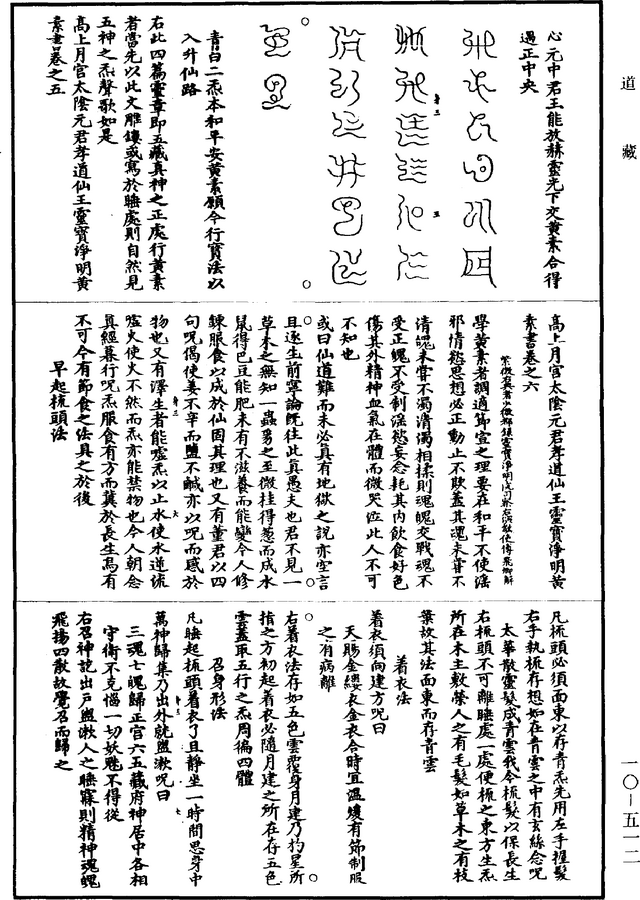 道藏
心元中君王能放赫靈光下交黃素合得
過正中央
青白二炁本和平安黃素願令行寶法以
入升仙路
右此四篇靈章即五藏真神之正處行黃素
者當先以此文雕鏤或寫於睡處則自然見
五神之炁聲歌如是
高上月宮太陰元君孝道仙王靈寶淨明黃
素書卷之五
高上月宮太陰元君孝道仙王靈寶淨明黃
素書卷之六
學黃素者調適節宣之理要在和平不使淫
邪情慾思想必正動止不欺蓋其魂未嘗不
清魄未嘗不濁清濁相揉則魂魄交戰魂不
受正魄不受制淫慾妄念耗其內飲食好色
傷其外精神血氣在體而微哭泣此人不可
不知也
或曰仙道難而未必真有地獄之說亦空言
且逐生前寧論既往此真愚夫也君不見一
草木之無知一蟲豸之至微桂得葱而成水
鼠得巴豆能肥未有不滋養而能變令人修
鍊服食以成於仙固其理也又有董君以四
句呪偈使姜不辛而鹽不鹹亦以呪而感於
物也又有澤生者能噓炁以止水使水逆流
噓火使火不然而炁亦能禁物也今人朝念
真經暮行呪炁服食有方而冀於長生焉有
不可今有節食之法具之於後
早起梳頭法
凡梳頭必須面東以存青炁先用左手握髮
右手執梳存想如在青雲之中有玄絲念呪
太華散靈髮成青雲我今梳髮以保長生
右梳頭不可離睡處一處便梳之東方生炁
所在木主敷榮人之有毛髮如草木之有枝
葉故其法面東而存青雲
着衣法
着衣須向建方呪曰
天賜金縷衣金衣合時宜溫煖有節制服
之有病離
右着衣法存如五色雲覆身月建乃杓星所
指之方初起着衣必隨月建之所在存五色
雲蓋取五行之炁周徊四體
召身形法
凡睡起梳頭着衣了且靜坐一時間思身中
萬神歸集乃出外就盥漱呪曰
三魂七魄歸正宮六五藏府神居中各相
守衛不克惱一切妖魁不得從
右召神訖出戶盥漱人之睡寐則精神魂魄
飛揚四散故覺召而歸之
一〇-五一二